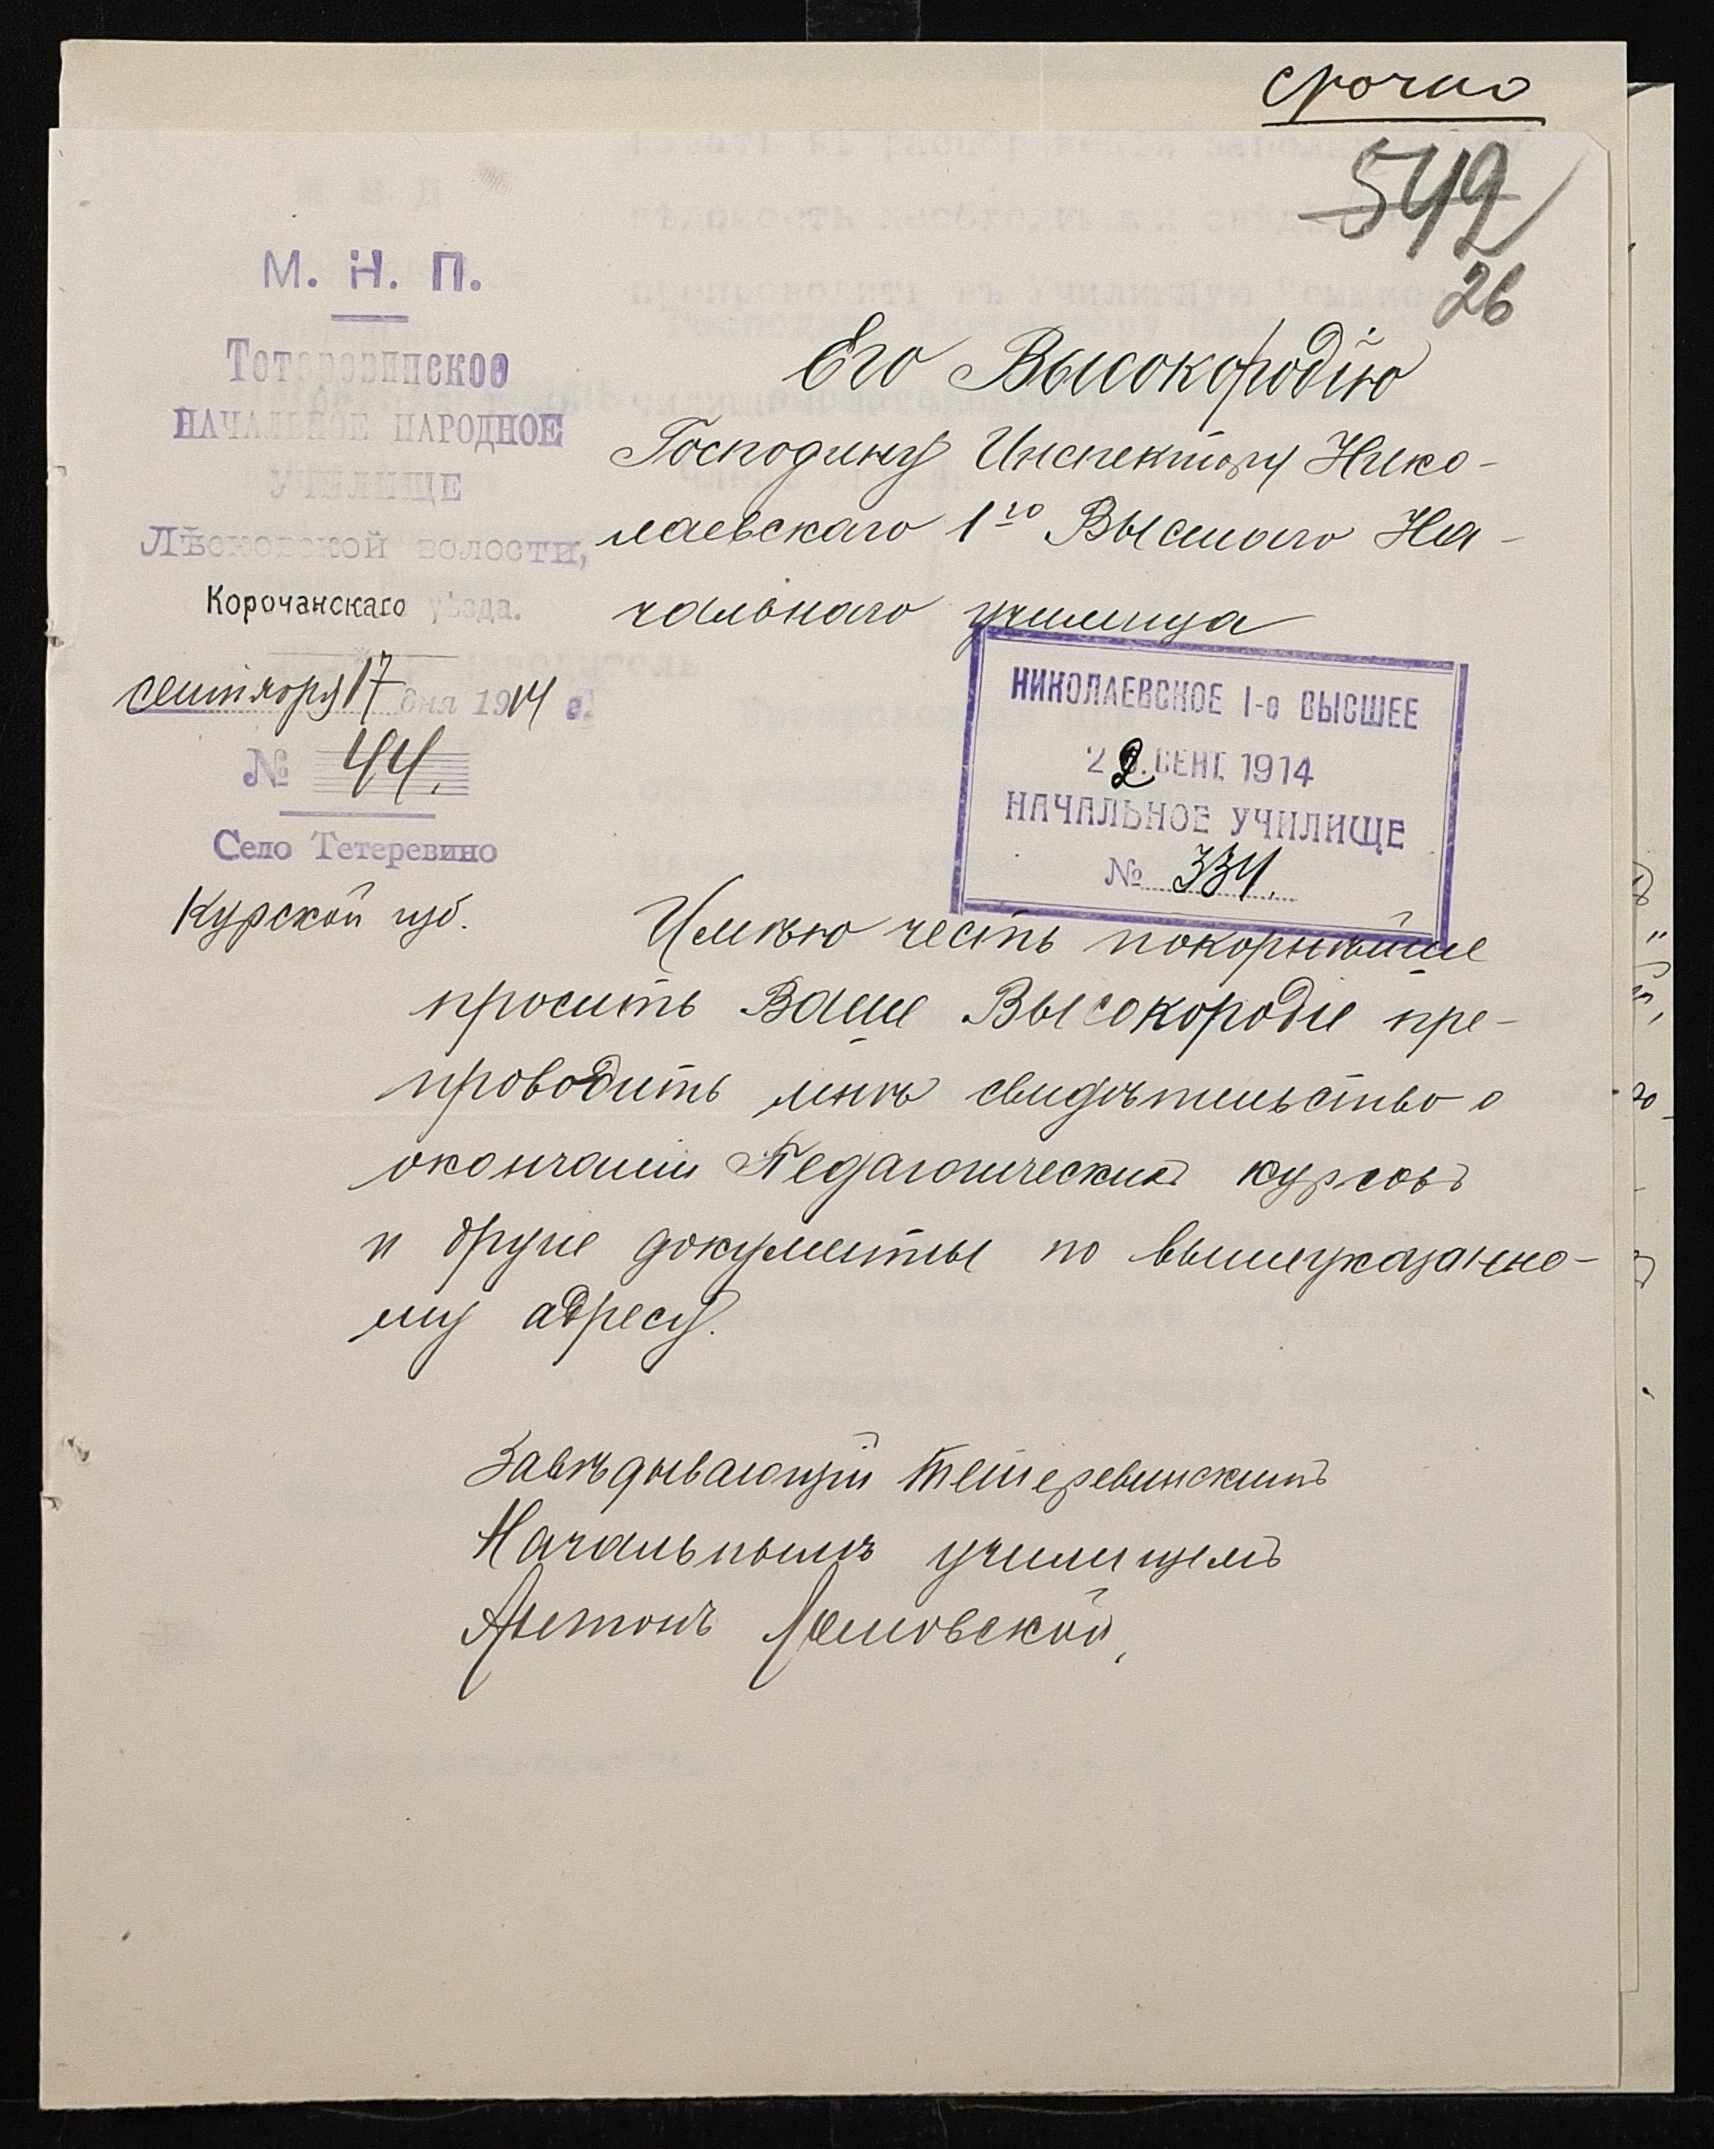 срочно
549
26
М. Н. П.
Тетеревинское
НАЧАЛЬНОЕ НАРОДНОЕ
УЧИЛИЩЕ
Лѣсковской волости,
Корочанскаго уѣзда.
сентября 17 дня 1914 г.
№ 44.
Село Тетеревино
Курской губ.
Его Высокородію
Господину Инспектору Нико-
лаевскаго 1го Высшаго На-
чальнаго училища
НИКОЛАЕВСКОЕ 1-е ВЫСШЕЕ
22. СЕНТ. 1914
НАЧАЛЬНОЕ УЧИЛИЩЕ
№ 334.
Имѣю честь покорнѣйше
просить Ваше Высокородіе пре-
проводить мнѣ свидѣтельство о
окончаніи Педагогическихъ курсовъ
и другіе документы по вышеуказанно-
му адресу.
Завѣдывающій Тетеревинскимъ
Начальнымъ училищемъ
Антонъ